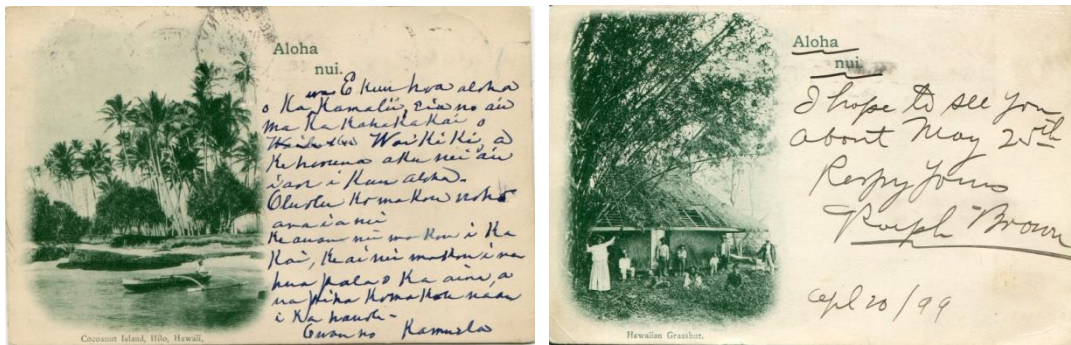 Aloha
nui.
E kuu hoa aloha
o Ka Kamalii, eia no au
ma Ka Kahakakai o
Waikiki, a
aku nei au
i kuu aloha.
Komakou noho
ana ia nei
makou i Ka
Kai, Ke ai nei makou i na
hua pala o Ka aina, a
na piha Komakou naau
i Ka hauoli-
Owau no Kamuela
Cocoanut Island, Hilo, Hawaii.
Aloha
nui.
I hope to see you
about May 25th
Respy Yours
Ralph Brown
Apl 20/99
Hawaiian Grasshut.